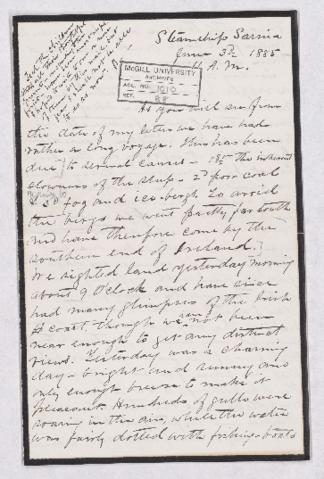 Steamship Sarnia
June 3d, 1885
11 A.M.
McGILL UNIVERSITY
ARCHIVES
ACC. NO. 1010
REF.
As you will see from
the date of my letter we have had
rather a long voyage. This has been
due to several causes - 1st The inherent
slowness of the ship - 2d poor coal
& 3d fog and ice-bergs. To avoid
the bergs we went pretty far south
and have therefore come by the
southern end of Ireland.
We sighted land yesterday morning
about 9 O'clock and have since
had many glimpses of the Irish
coast though we have not been
near enough to get any distinct
views. Yesterday was a charming
day - bright and sunny and
only enough breeze to make it
pleasant. Hundreds of gulls were
soaring in the air, while the water
was fairly dotted with fishing-boats